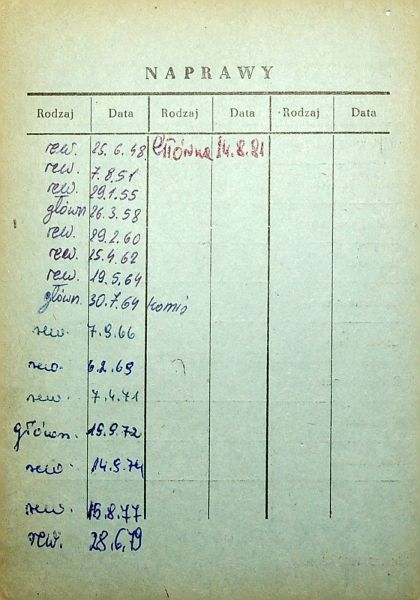 NAPRAWY
Rodzaj Data Rodzaj Data Rodzaj Data
rew. 25.6.48 Główna 14.8.81
rew. 7.8.51
rew. 29.1.55
główn 26.3.58
rew. 29.2.60
rew. 25.4.62
rew. 19.5.64
główn. 30.7.64 komis
rew. 7.9.66
rew. 6.2.69
rew. 7.4.71
główn. 19.9.72
rew. 14.9.74
rew. 15.8.77
rew. 28.6.79